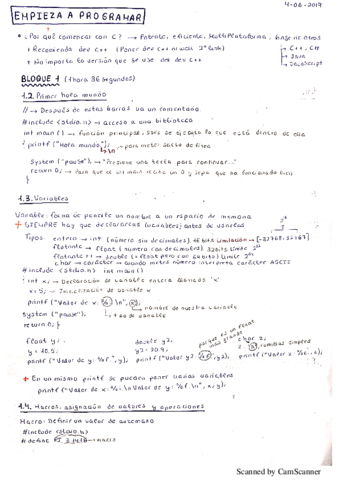 4-06-2019
EMPIEZA A PROGRAMAR
• ¿Por qué comenzar con C? → Potente, eficiente, Multiplataforma, base de otros
+ Recomienda Dev C++ (Poner dev C++ en
→ C++, C#
→ Java
→ JavaScript
+ No importa la versión que se use del dev C++
BLOQUE 1 (1 hora 36 segundos)
1.2. Primer hola mundo
// → Después de estas barras va un comentario.
#include <stdio.h> → acceso a una biblioteca
int main () → función principal, solo se ejecuta lo que está dentro de ella
{ printf ("Hola mundo"); → para meter salto de línea
\n
System ("pause"); → "Presione una tecla para continuar..."
return 0; → Para que el int main reciba un 0 y sepa que ha funcionado bien
}
1.3. Variables
Variable: forma de ponerle un nombre a un espacio de memoria
+ SIEMPRE hay que declararlas (variables) antes de usarlas
Tipos: entero → int (número sin decimales) Limitación → [-32768, 32767]
flotante → float (número con decimales) 32bits
flotante ++ → double (= float pero con 64bits)
char → carácter → cuando metes número interpreta carácter ASCII
#include <stdio.h> int main()
{ int x; → Declaración de variable entera llamada 'x'
x = 5; → Inicialización de variable x
printf ("Valor de x: %i \n", x);
→ nombre de nuestra variable
System ("pause"); → tipo de variable
return 0; }
float y;
y = 10.5;
printf ("Valor de y: %f.", y);
double y2;
y2 = 30.4;
printf ("Valor y2:
char z;
comillas simples
+ En un mismo printf se pueden poner varias variables
printf ("Valor de x: %i. \n Valor de y: %f \n", x, y);
1.4. Macros, asignación de valores y operaciones
Macro: Definir un valor de antemano
#include <stdio.h>
#define PI 3.1416 → macro
Scanned by CamScanner